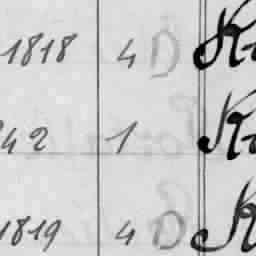 1818 4 D
42 1
1819 4 D